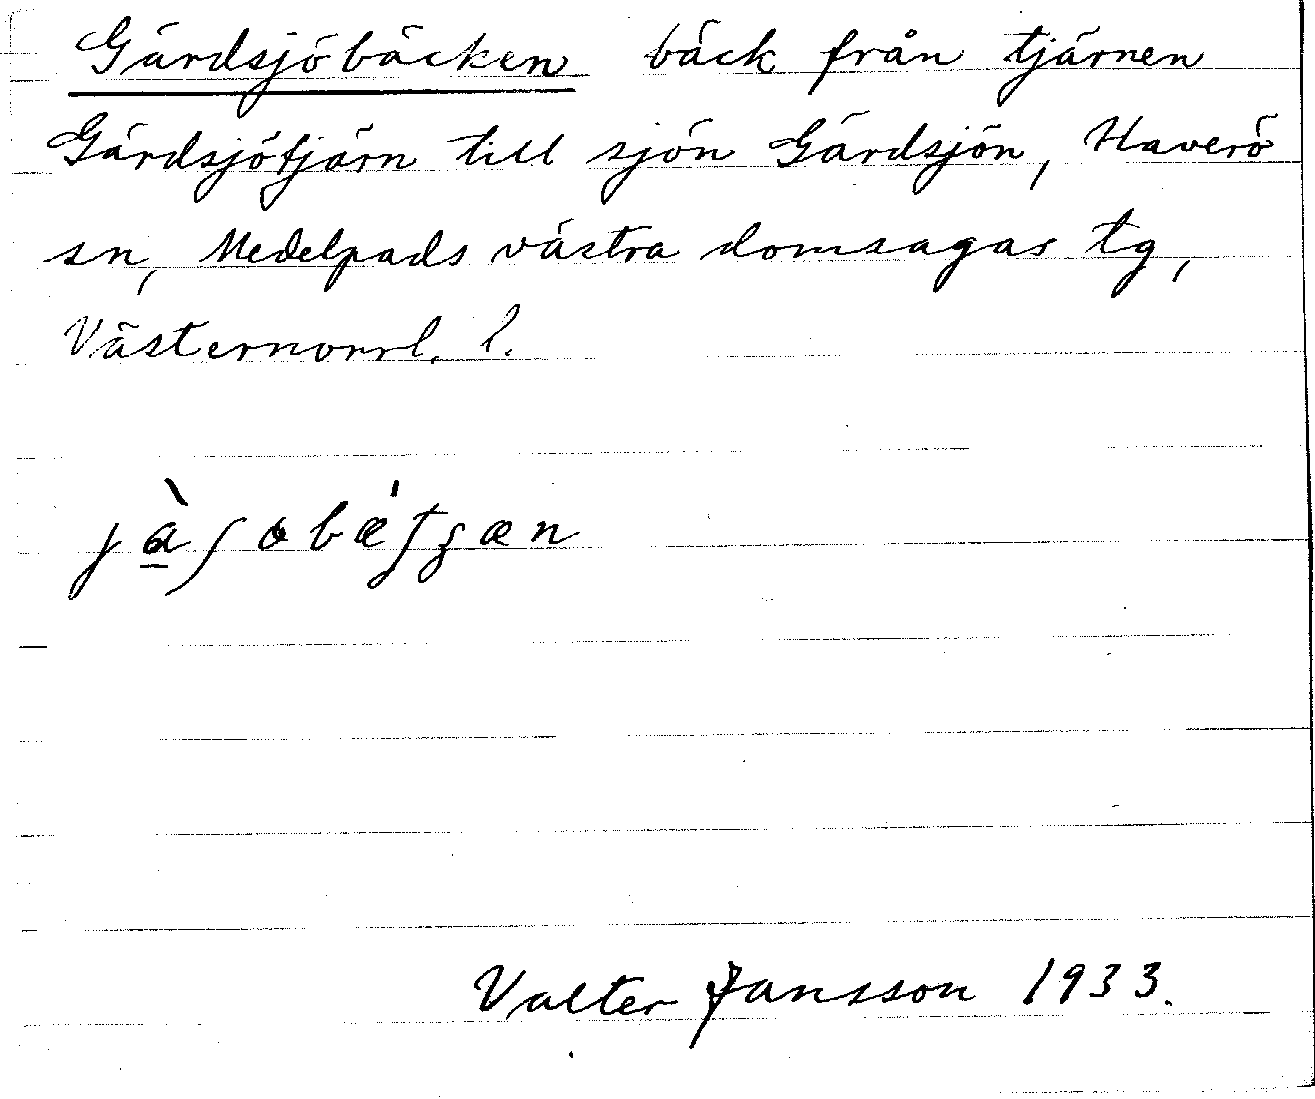 Gärdsjöbäcken bäck från tjärnen
Gärdsjötjärn till sjön Gärdsjön, Haverö
sn, Medelpads västra domsagas tg,
Västernorrl. l.
Valter Jansson 1933.